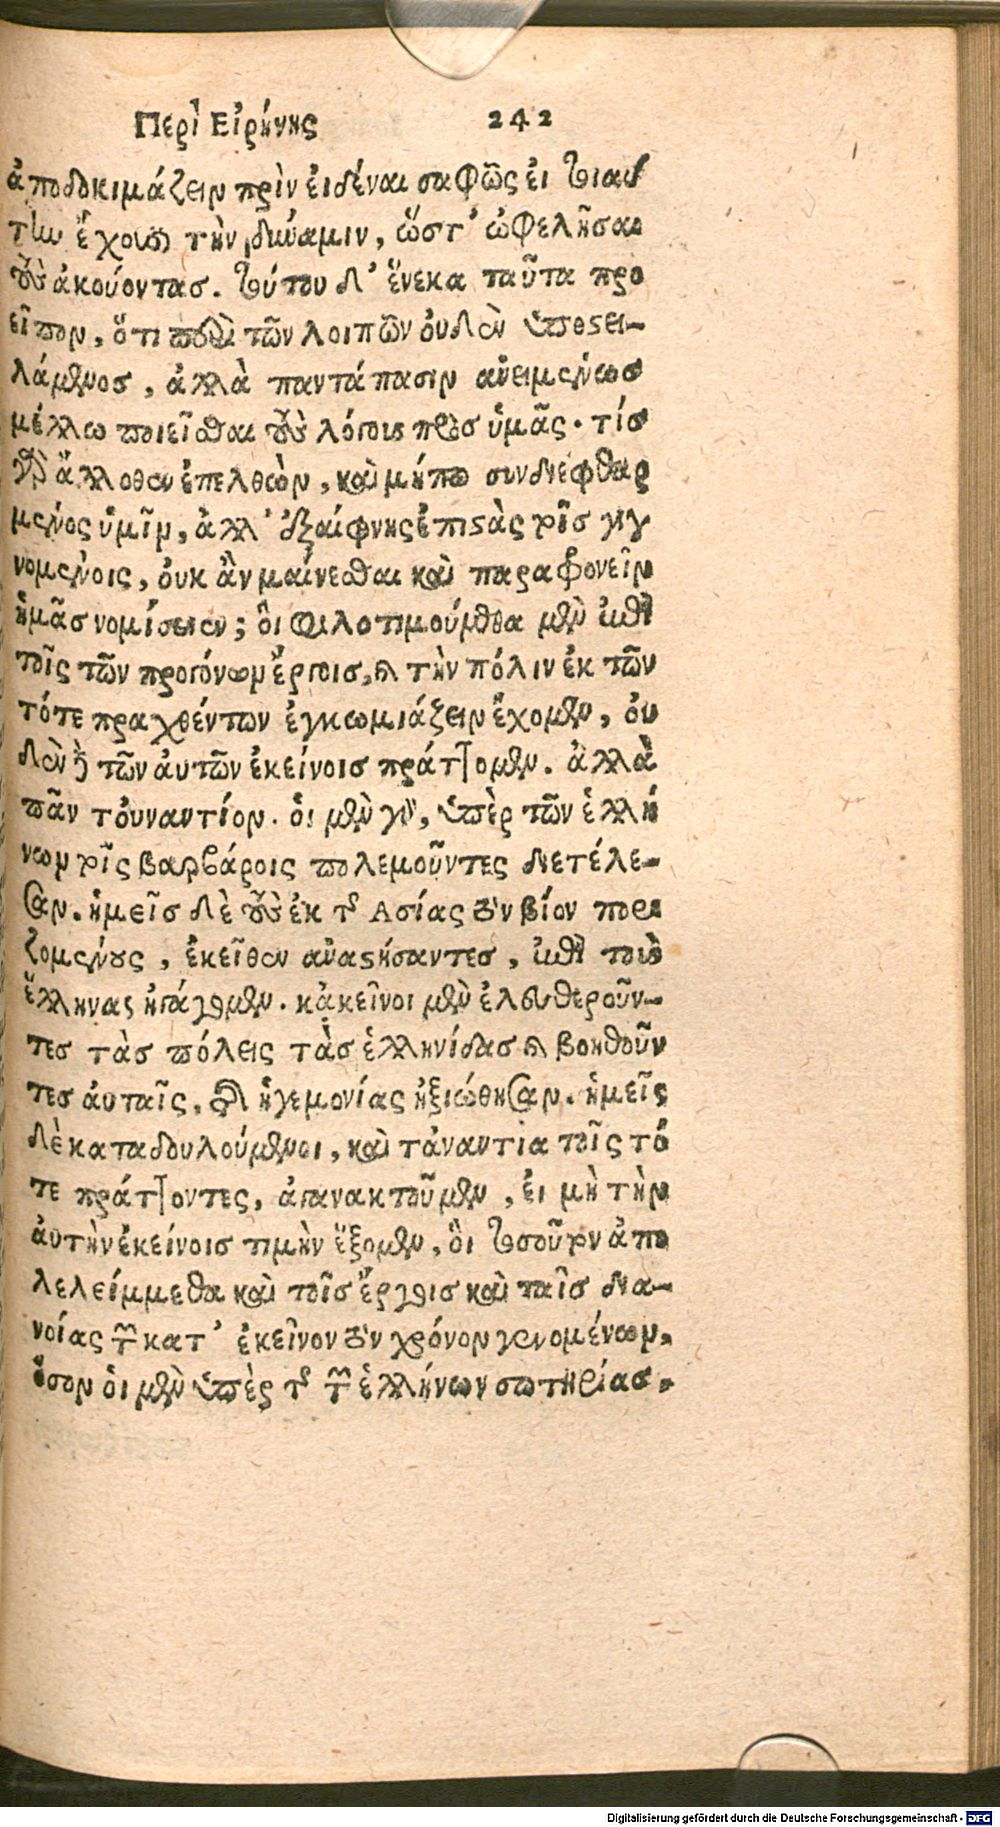 Περὶ Εἰρήνης 242
ἀποδοκιμάζειν πρὶν εἰδέναι σαφῶς εἰ τοιαύ
την ἔχουσι τὴν δύναμιν, ὥστ' ὠφελῆσαι
τοὺς ἀκούοντας. τούτου δ' ἕνεκα ταῦτα προ
εῖπον, ὅτι περὶ τῶν λοιπῶν οὐδὲν ὑποστει-
λάμενος, ἀλλὰ παντάπασιν ἀνειμένως
μέλλω ποιεῖσθαι τοὺς λόγους πρὸς ὑμᾶς. τίς
γὰρ ἄλλοθεν ἐπελθὼν, καὶ μήπω συνδιεφθαρ
μένος ὑμῖν, ἀλλ' ἐξαίφνης ἐπιστὰς τοῖς γιγ
νομένοις, οὐκ ἂν μαίνεσθαι καὶ παραφρονεῖν
ἡμᾶς νομίσειεν; οἳ φιλοτιμούμεθα μὲν ἐπὶ
τοῖς τῶν προγόνων ἔργοις, καὶ τὴν πόλιν ἐκ τῶν
τότε πραχθέντων ἐγκωμιάζειν ἔχομεν, οὐ
δὲν δὲ τῶν αὐτῶν ἐκείνοις πράττομεν. ἀλλὰ
πᾶν τοὐναντίον. οἱ μὲν γὰρ, ὑπὲρ τῶν ἑλλή
νων τοῖς βαρβάροις πολεμοῦντες διετέλε-
σαν. ἡμεῖς δὲ τοὺς ἐκ τῆς Ἀσίας τὸν βίον πορι
ζομένους, ἐκεῖθεν ἀναστήσαντες, ἐπὶ τοὺς
ἕλληνας ἠγάγομεν. κἀκεῖνοι μὲν ἐλευθεροῦν-
τες τὰς πόλεις τὰς ἑλληνίδας καὶ βοηθοῦν
τες αὐταῖς, τῆς ἡγεμονίας ἠξιώθησαν. ἡμεῖς
δὲ καταδουλούμενοι, καὶ τἀναντία τοῖς τό
τε πράττοντες, ἀγανακτοῦμεν, εἰ μὴ τὴν
αὐτὴν ἐκείνοις τιμὴν ἕξομεν, οἳ τοσοῦτον ἀπο
λελείμμεθα καὶ τοῖς ἔργοις καὶ ταῖς δια-
νοίας τῶν κατ' ἐκεῖνον τὸν χρόνον γενομένων,
ὅσον οἱ μὲν ὑπὲρ τῆς τῶν ἑλλήνων σωτηρίας,
Digitalisierung gefördert durch die Deutsche Forschungsgemeinschaft - DFG